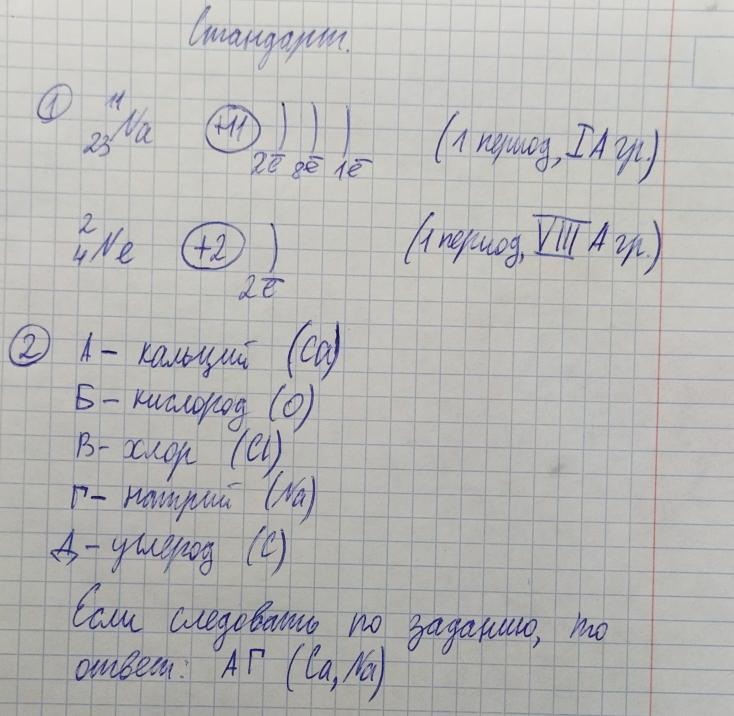 Стандарт.
① 11 23 Na +11 ) ) ) 2ē 8ē 1ē (1 период, I А гр.)
2 4 Ne +2 ) 2ē (1 период, VIII А гр.)
② А – кальций (Ca)
Б – кислород (O)
В – хлор (Cl)
Г – натрий (Na)
Д – углерод (C)
Если следовать по заданию, то
ответ: АГ (Ca, Na)